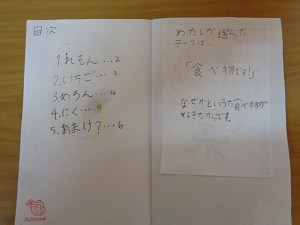 目次
1.れもん…2
2.いちご…3
3.めろん…4
4.にく…5
5.おまけ?…6
わたしが選んだ
テーマは…
「食べ物です!」
なぜかというと食べ物が
好きだからです。